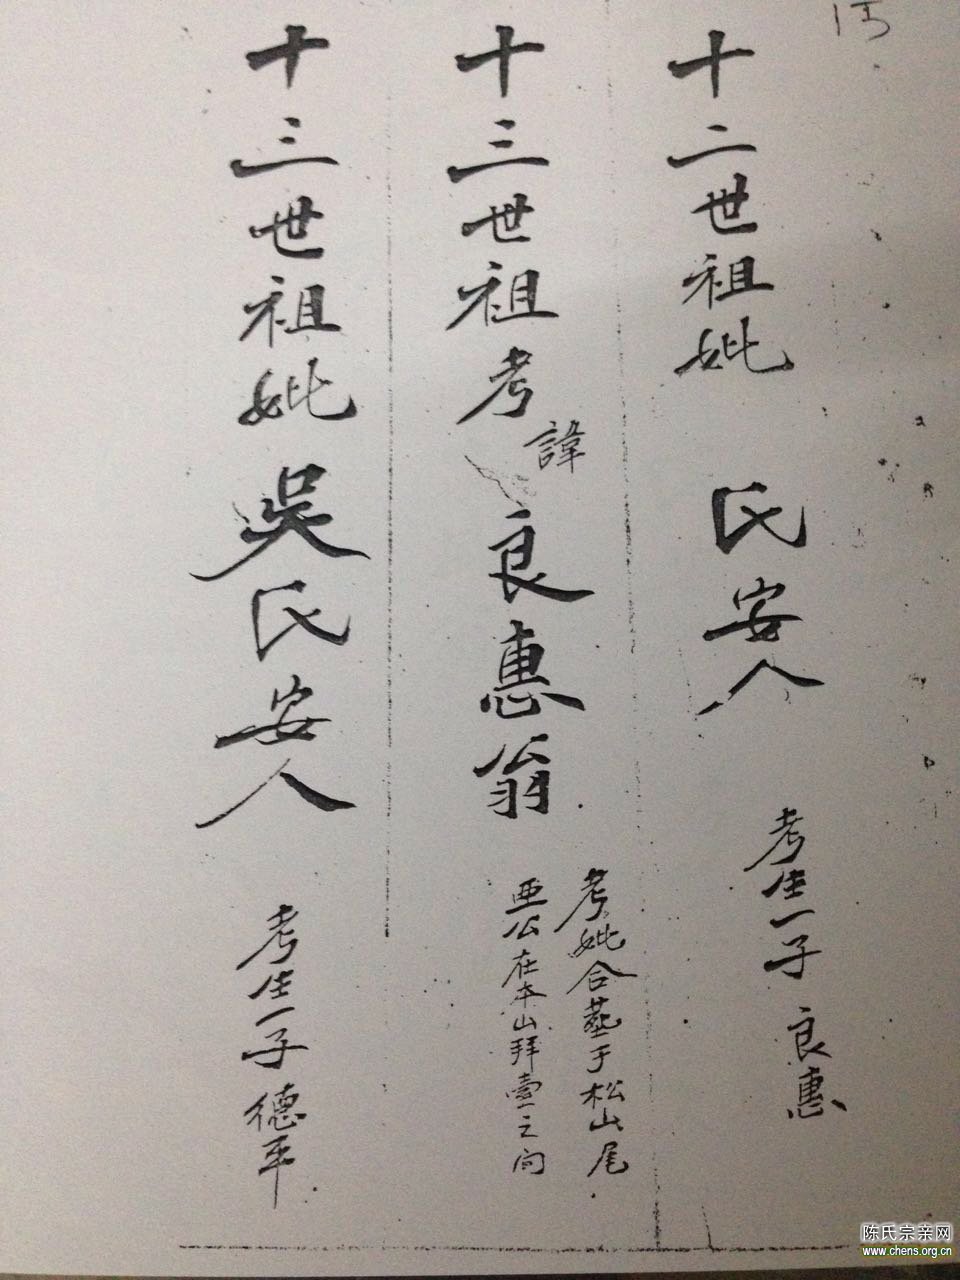 15
十二世祖妣 氏安人
考生一子 良惠
十三世祖考諱良惠翁
考妣合墓于松山尾
亜公在本山拜壹之间
十三世祖妣吳氏安人
考生一子德平
陈氏宗亲网
www.chens.org.cn